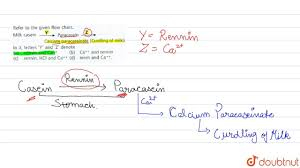 Refer to the given flow chart.
Milk casein Y Paracasein Z
Calcium paracaseinate (Curdling of milk)
In it, letters 'Y' and 'Z' denote
(b) Ca²⁺ and rennin
(c) rennin, HCl and Ca²⁺ (d) rennin and Ca²⁺.
Y = Rennin
Z = Ca²⁺
Casein Rennin Paracasein
Stomach
Ca²⁺
Calcium Paracaseinate
Curdling of Milk
doubtnut